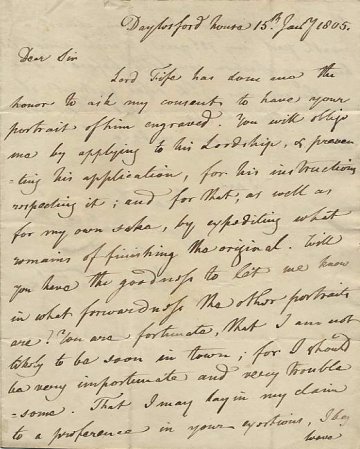 Daylesford house 15th Jany 1805.
Dear Sir
Lord Fife has done me the
honor to ask my consent to have your
portrait of him engraved. You will oblige
me by applying to his Lordship, & preven
-ting his application, for his instructions
respecting it; and for that, as well as
for my own sake, by expediting what
remains of finishing the original. Will
you have the goodness to let me know
in what forwardness the other portraits
are? You are fortunate, that I am not
likely to be soon in town; for I should
be very importunate and very trouble
-some. That I may lay in my claim
to a preference in your exertions, I beg
leave